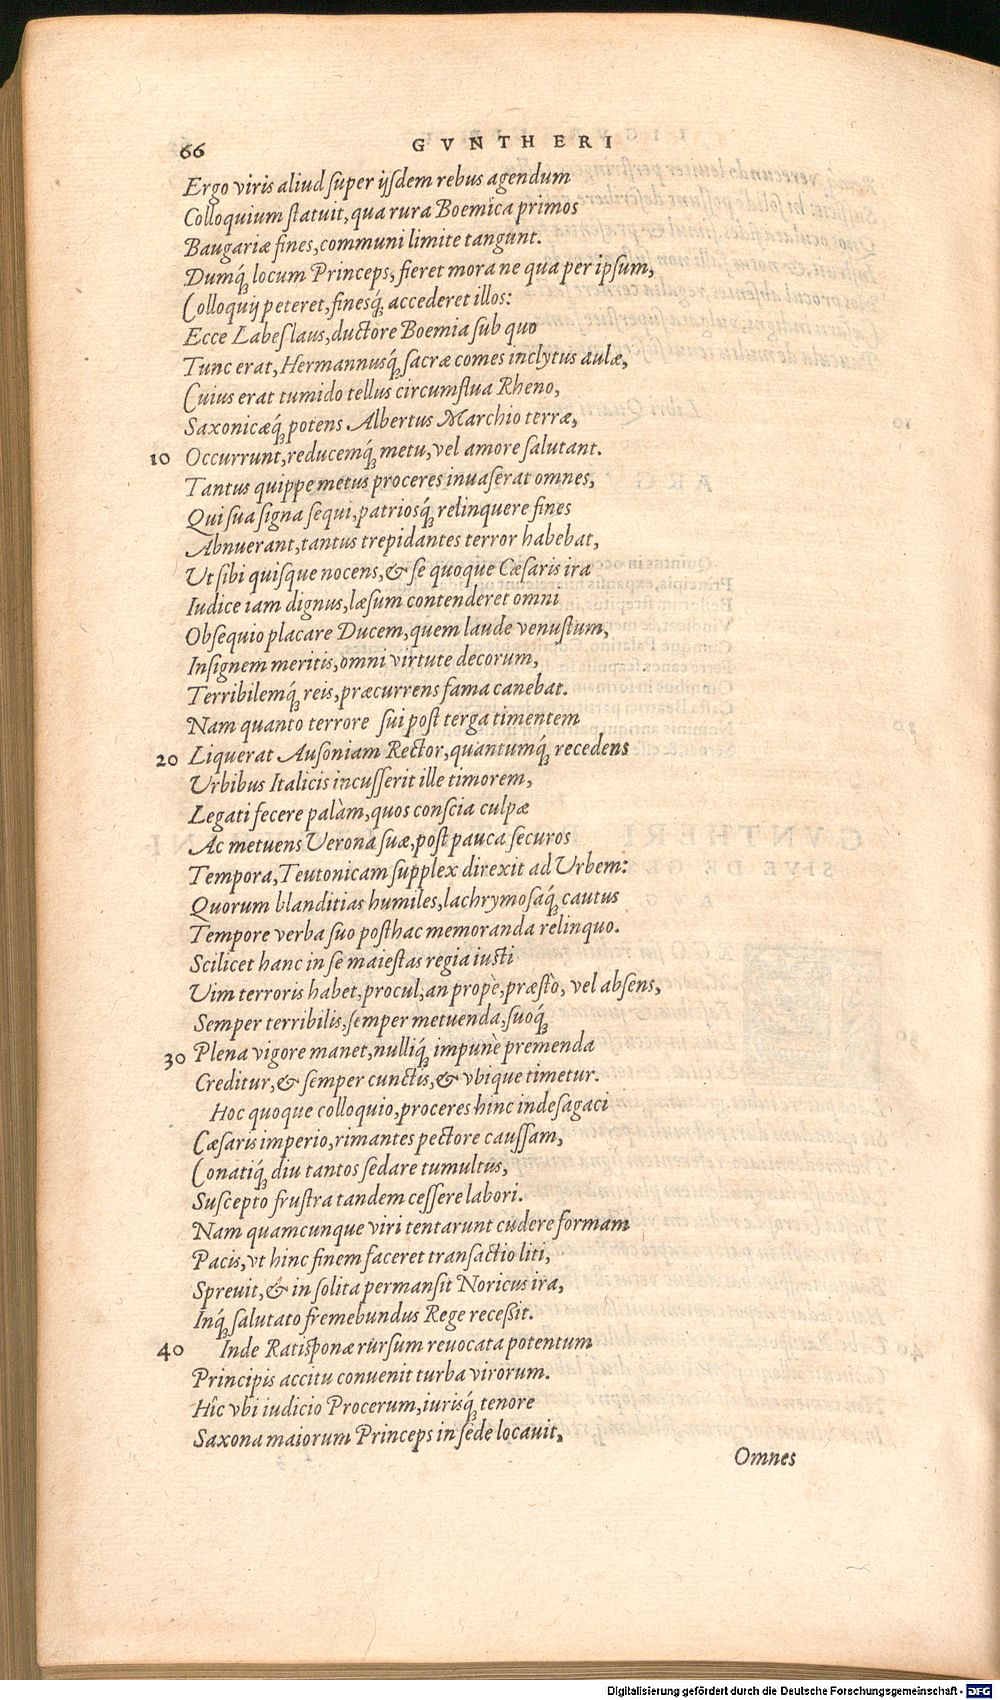 66 GVNTHERI
Ergo viris aliud ſuper ijſdem rebus agendum
Colloquium ſtatuit, qua rura Boemica primos
Baugariæ fines, communi limite tangunt.
Dumq́; locum Princeps, fieret mora ne qua per ipſum,
Colloquij peteret, fineſq́; accederet illos:
Ecce Labeſlaus, ductore Boemia ſub quo
Tunc erat, Hermannusq́; ſacræ comes inclytus aulæ,
Cuius erat tumido tellus circumflua Rheno,
Saxonicæq́; potens Albertus Marchio terræ,
10 Occurrunt, reducemq́; metu, vel amore ſalutant.
Tantus quippe metus proceres inuaſerat omnes,
Qui ſua ſigna ſequi, patrioſq́; relinquere fines
Abnuerant, tantus trepidantes terror habebat,
Ut ſibi quiſque nocens, & ſe quoque Cæſaris ira
Iudice iam dignus, læſum contenderet omni
Obſequio placare Ducem, quem laude venuſtum,
Inſignem meritis, omni virtute decorum,
Terribilemq́; reis, præcurrens fama canebat.
Nam quanto terrore ſui poſt terga timentem
20 Liquerat Auſoniam Rector, quantumq́; recedens
Urbibus Italicis incuſſerit ille timorem,
Legati fecere palàm, quos conſcia culpæ
Ac metuens Verona ſuæ, poſt pauca ſecuros
Tempora, Teutonicam ſupplex direxit ad Urbem:
Quorum blanditias humiles, lachrymoſaq́; cautus
Tempore verba ſuo poſthac memoranda relinquo.
Scilicet hanc in ſe maieſtas regia iuſti
Uim terroris habet, procul, an propè, præſtò, vel abſens,
Semper terribilis, ſemper metuenda, ſuoq́;
30 Plena vigore manet, nulliq́; impunè premenda
Creditur, & ſemper cunctis, & vbique timetur.
Hoc quoque colloquio, proceres hinc inde ſagaci
Cæſaris imperio, rimantes pectore cauſſam,
Conatiq́; diu tantos ſedare tumultus,
Suſcepto fruſtra tandem ceſſere labori.
Nam quamcunque viri tentarunt cudere formam
Pacis, vt hinc finem faceret tranſactio liti,
Spreuit, & in ſolita permanſit Noricus ira,
Inq́; ſalutato fremebundus Rege receßit.
40 Inde Ratiſponæ rurſum reuocata potentum
Principis accitu convenit turba virorum.
Hîc vbi iudicio Procerum, iurisq́; tenore
Saxona maiorum Princeps in ſede locauit,
Omnes
Digitalisierung gefördert durch die Deutsche Forschungsgemeinschaft - DFG